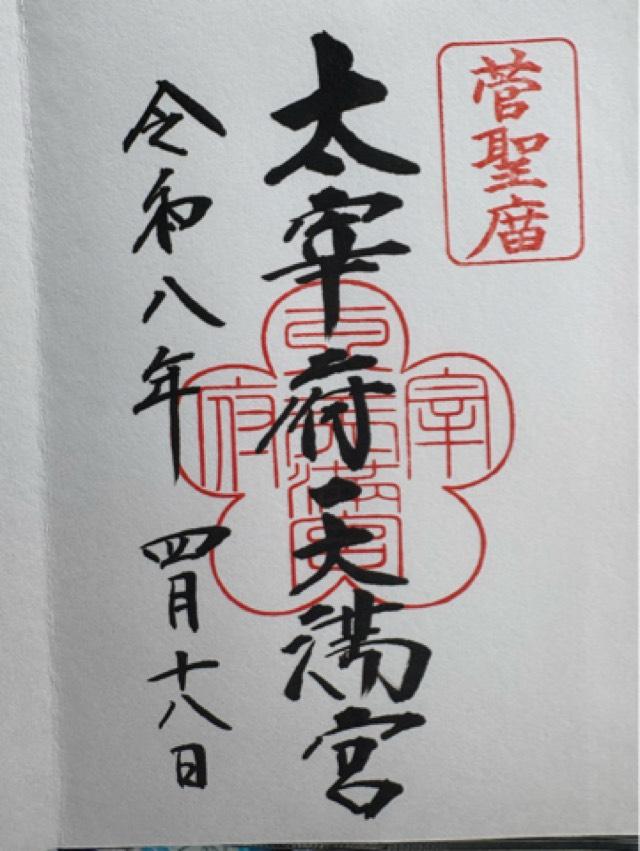 菅聖庿
太宰府天満宮
令和八年 四月十八日